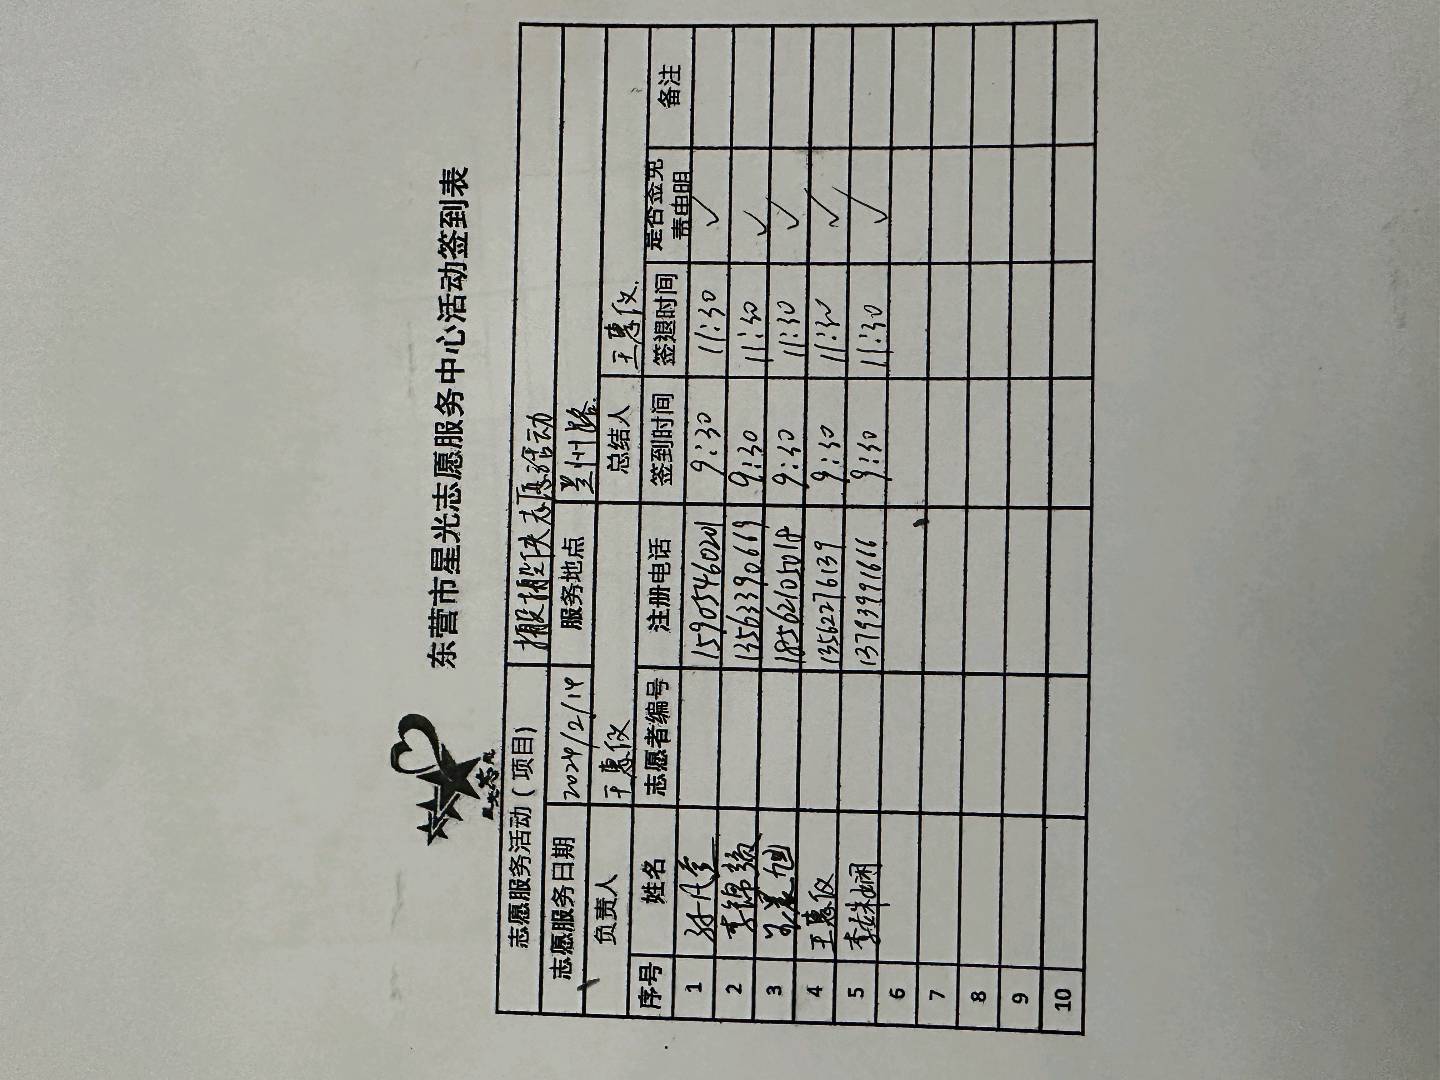 东营市星光志愿服务中心活动签到表
志愿服务活动（项目) 志愿活动
志愿服务日期 2024/2/14 服务地点 兰州路
负责人 王惠仪 总结人 王惠仪
序号 姓名 志愿者编号 注册电话 签到时间 签退时间 是否签免责申明 备注
1 15905460201 9:30 11:30 ✓
2 李锦颖 13563390669 9:30 11:30 ✓
3 18562105018 9:30 11:30 ✓
4 王惠仪 13562276139 9:30 11:30 ✓
5 李姝娴 13793991666 9:30 11:30 ✓
6
7
8
9
10